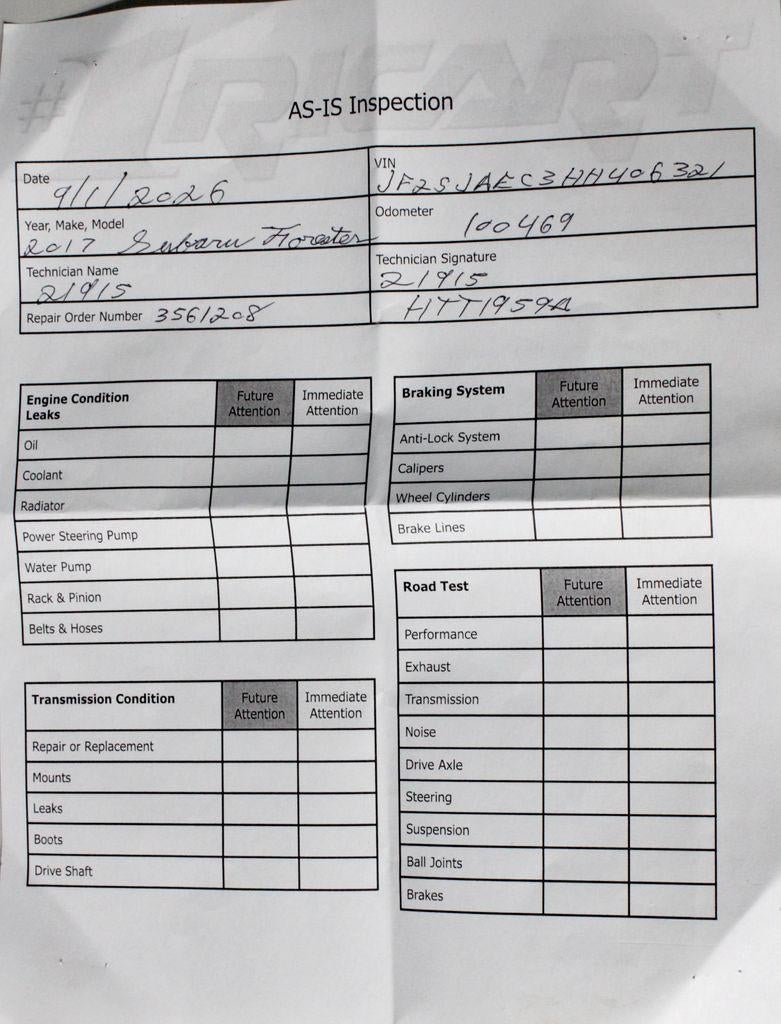 #1RICART
AS-IS Inspection
Date 9/1/2026
VIN JF2SJAEC3HH406321
Year, Make, Model 2017 Subaru Forester
Odometer 100469
Technician Name 21915
Technician Signature 21915
Repair Order Number 3561208
HTT1959A
Engine Condition Leaks Future Attention Immediate Attention
Oil
Coolant
Radiator
Power Steering Pump
Water Pump
Rack & Pinion
Belts & Hoses
Transmission Condition Future Attention Immediate Attention
Repair or Replacement
Mounts
Leaks
Boots
Drive Shaft
Braking System Future Attention Immediate Attention
Anti-Lock System
Calipers
Wheel Cylinders
Brake Lines
Road Test Future Attention Immediate Attention
Performance
Exhaust
Transmission
Noise
Drive Axle
Steering
Suspension
Ball Joints
Brakes